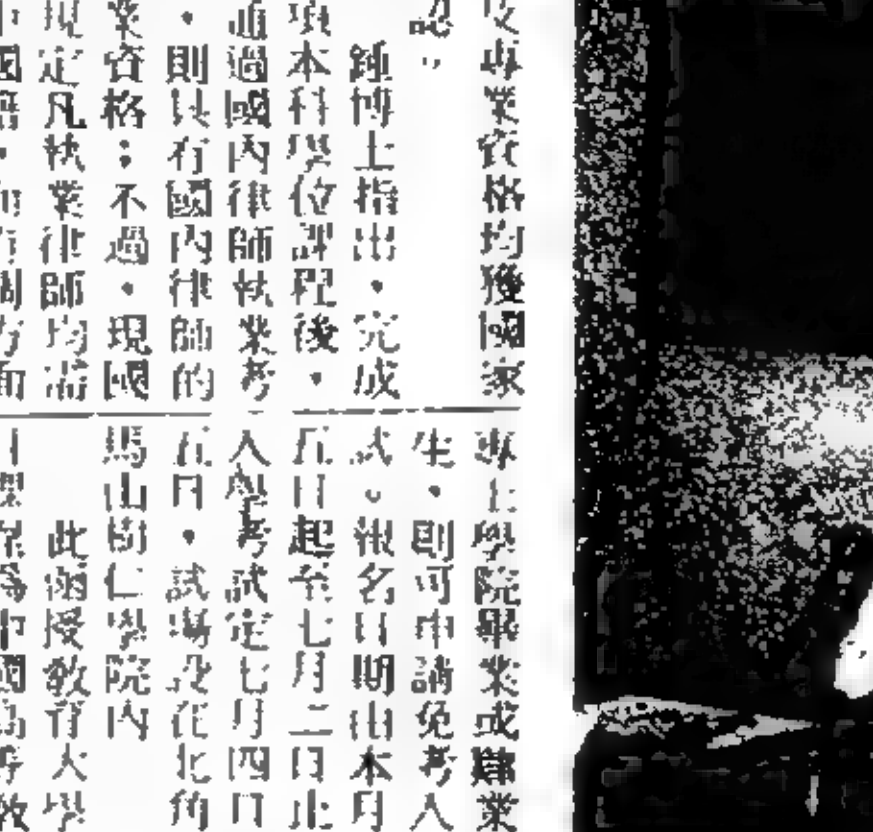 及專業資格均獲國家
認。
鍾博士指出，完成
項本科學位課程後，
通過國內律師執業考
，則具有國內律師的
業資格；不過，現國
規定凡執業律師均需
專上學院畢業或職業
生，則可申請免考入
試。報名日期由本月
五日起至七月二日止
入學考試定七月四日
五日，試場設在北角
馬山樹仁學院內
此函授教育大學